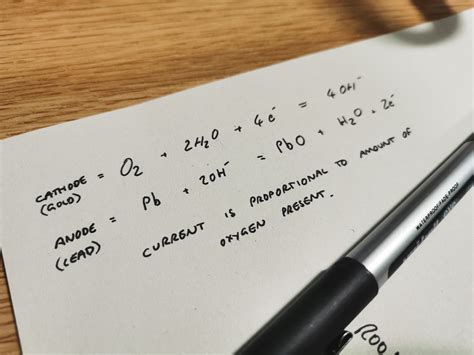 CATHODE = O₂ + 2H₂O + 4e⁻ = 4OH⁻
(GOLD)
ANODE = Pb + 2OH⁻ = PbO + H₂O + 2e⁻
(LEAD)
CURRENT IS PROPORTIONAL TO AMOUNT OF
OXYGEN PRESENT.
WATERPROOF/FADE PROOF